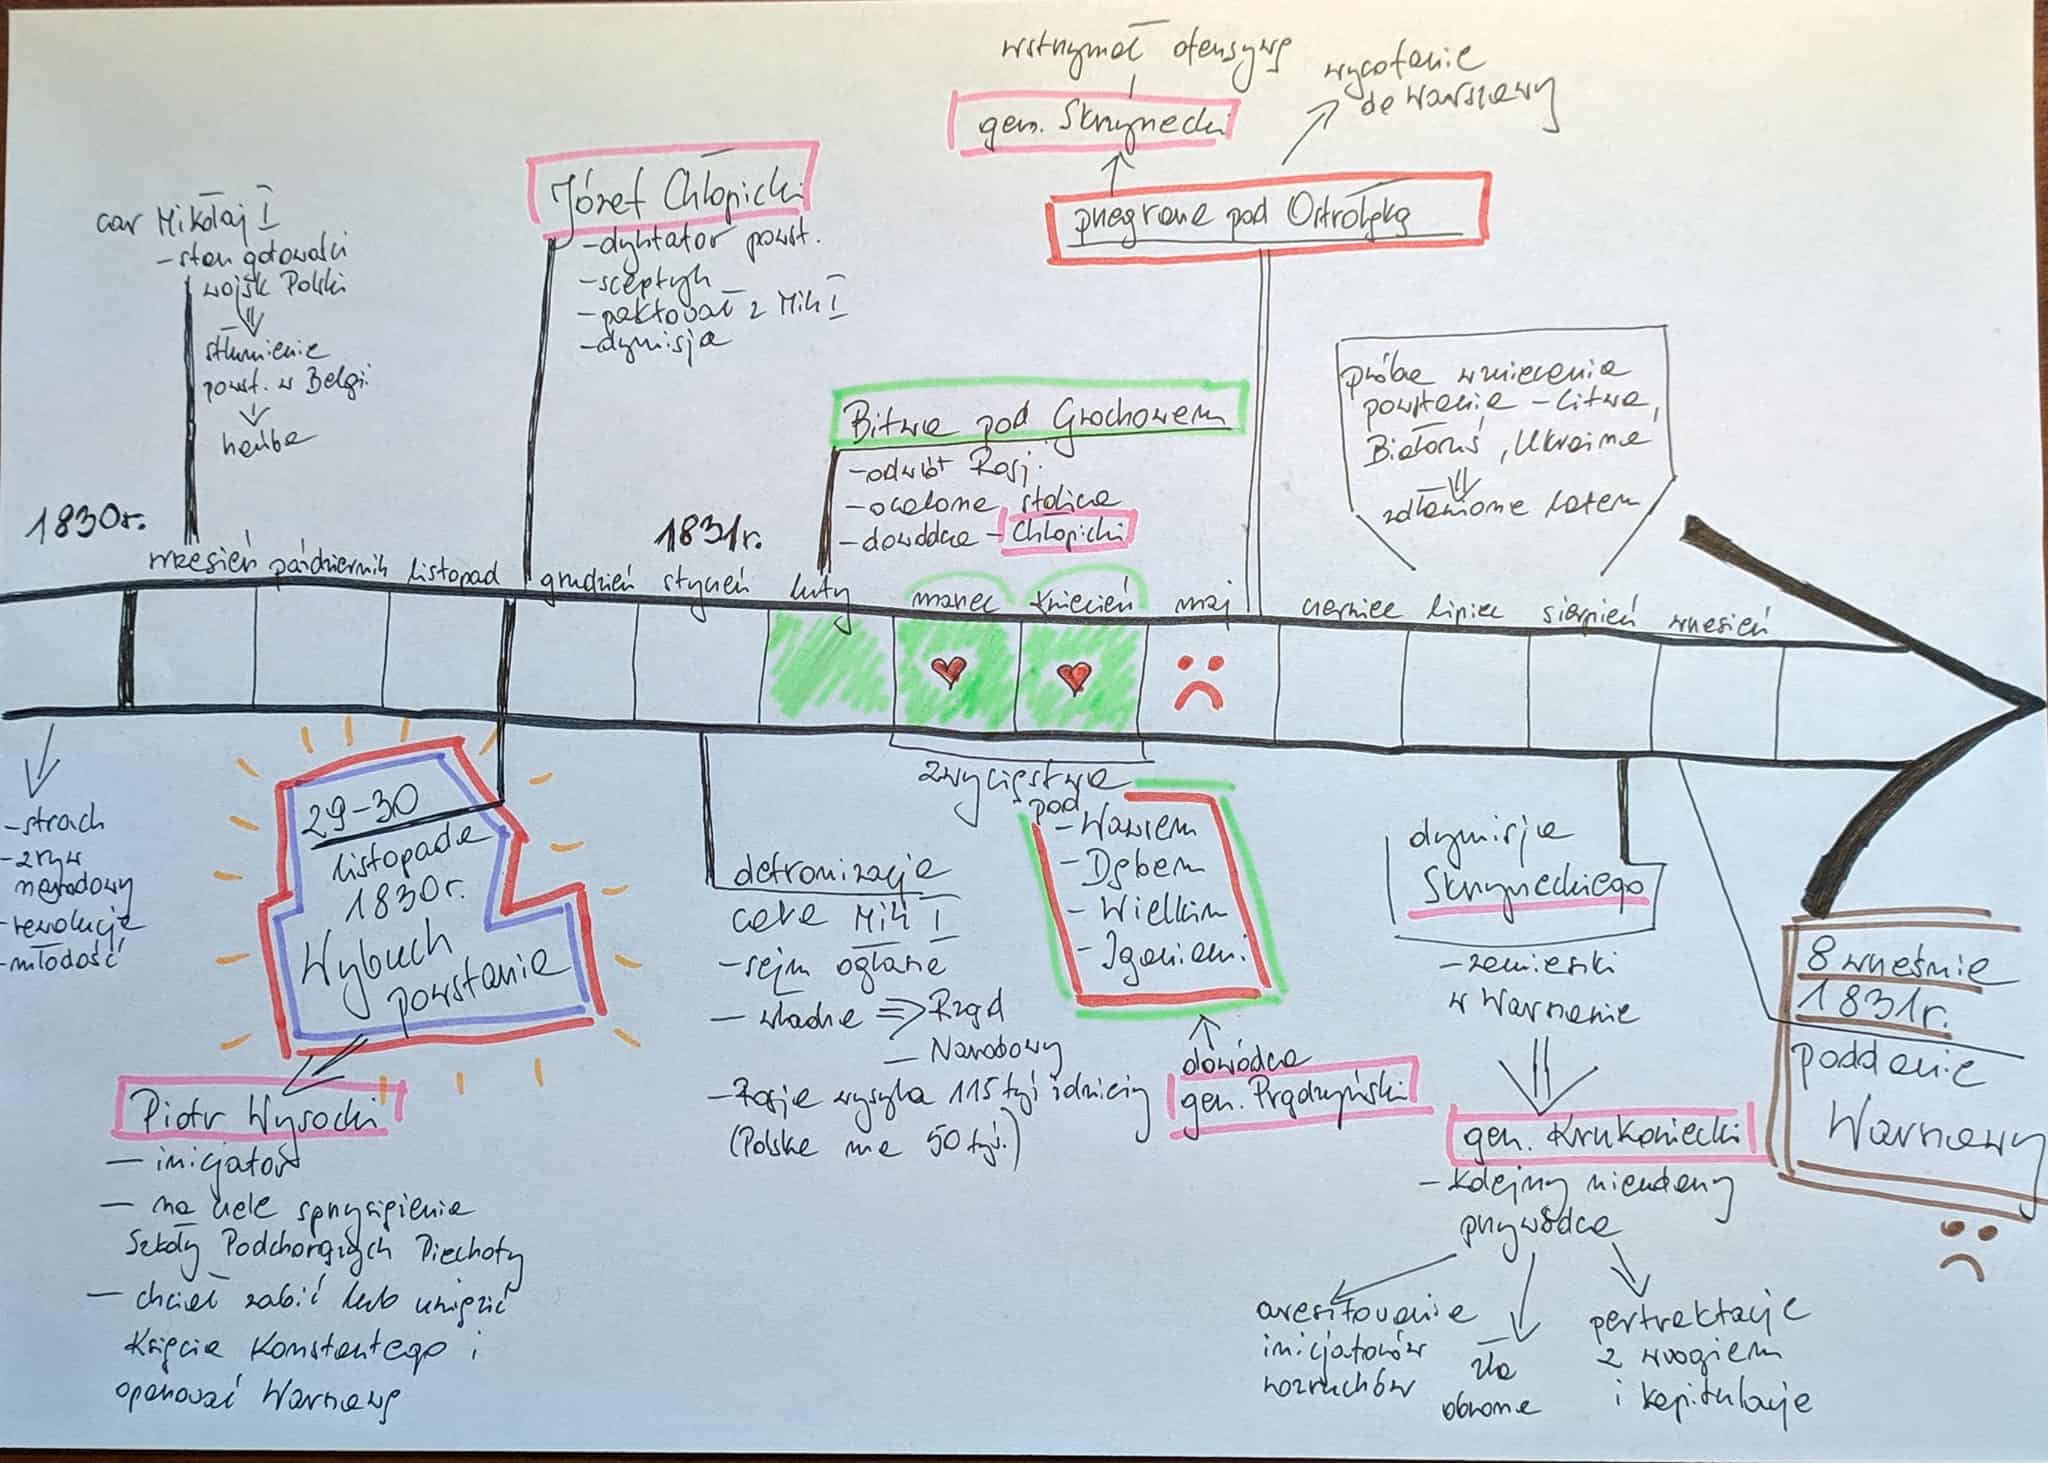 wstrzymał ofensywę
gen. Skrzynecki
wycofanie
do Warszawy
przegrana pod Ostrołęką
car Mikołaj I
- stan gotowości
wojsk Polski
stłumienie
powst. w Belgi
hańba
Józef Chłopicki
- dyktator powst.
- sceptyk
- paktował z Mik I
- dymisja
Bitwa pod Grochowem
- odwrót Rosj.
- ocalona stolica
- dowódca - Chłopicki
próba wzniecenia
powstania - Litwa,
Białoruś, Ukraina
zdławione latem
1830r.
1831r.
wrzesień październik listopad grudzień styczeń luty marzec kwiecień maj czerwiec lipiec sierpień wrzesień
- strach
- zryw
narodowy
- rewolucje
- młodość
29-30
listopada
1830r.
Wybuch
powstania
Piotr Wysocki
- inicjator
- na czele sprzysiężenia
Szkoły Podchorążych Piechoty
- chciał zabić lub uwięzić
Księcia Konstantego i
opanować Warszawę
detronizacja
cara Mik I
- sejm ogłasza
- władza ⇒ Rząd
- Narodowy
- Rosja wysyła 115 tyś żołnierzy
(Polska ma 50 tyś.)
zwycięstwa
pod
- Wawrem
- Dębem
- Wielkim
- Iganiami
dowódca
gen. Prądzyński
dymisja
Skrzyneckiego
- zamieszki
w Warszawie
gen. Krukowiecki
- kolejny nieudany
przywódca
aresztowanie
inicjatorów
rozruchów
zła
obrona
pertraktacje
z wrogiem
i kapitulacje
8 września
1831r.
poddanie
Warszawy